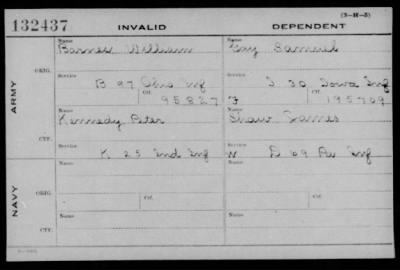 (3-H-3)
132437 INVALID DEPENDENT
ARMY
NAVY
ORIG.
Name Barnes William
Name Gay Samuel
Service B 97 Ohio Inf
Ctf. 95827
Service I 30 Iowa Inf
F Ctf. 195709
CTF.
Name Kennedy Peter
Name Shaw James
Service K 25 Ind Inf
Service W D 69 Pa Inf
ORIG.
Name
Name
Service Ctf.
Service Ctf.
CTF.
Name
Name